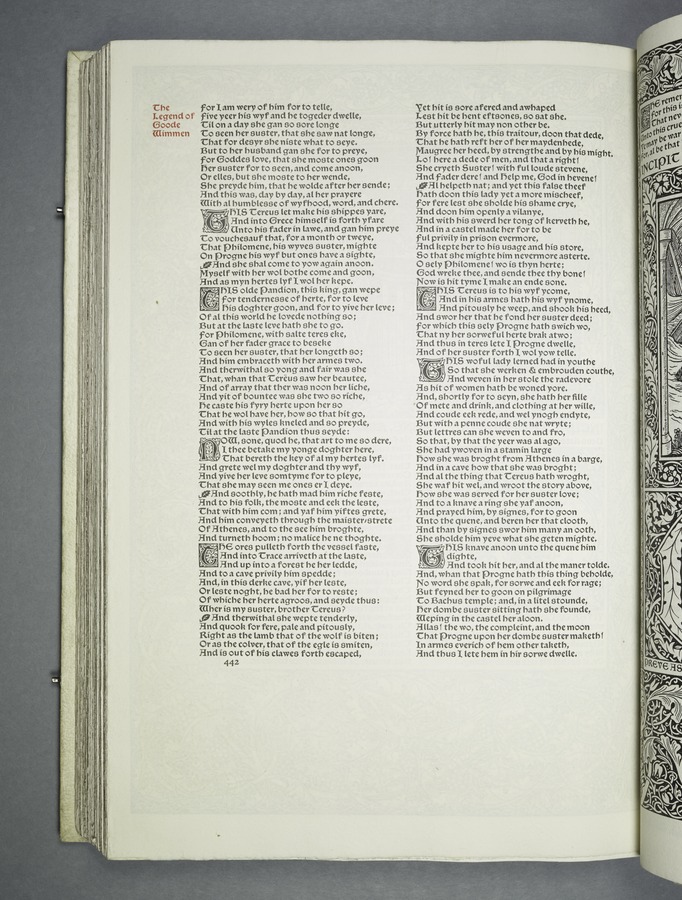 The
Legend of
Goode
Wimmen
For I am wery of him for to telle,
Five yeer his wyf and he togeder dwelle,
Til on a day she gan so sore longe
To seen her suster, that she saw nat longe,
That for desyr she niste what to seye.
But to her husband gan she for to preye,
For Goddes love, that she moste ones goon
Her suster for to seen, and come anoon,
Or elles, but she moste to her wende,
She preyde him, that he wolde after her sende;
And this was, day by day, al her prayere
With al humblesse of wyfhood, word, and chere.
THIS Tereus let make his shippes yare,
And into Grece himself is forth yfare
Unto his fader in lawe, and gan him preye
To vouchesauf that, for a month or tweye,
That Philomene, his wyves suster, mighte
On Progne his wyf but ones have a sighte,
And she shal come to yow again anoon.
Myself with her wol bothe come and goon,
And as myn hertes lyf I wol her kepe.
THIS olde Pandion, this king, gan wepe
For tendernesse of herte, for to leve
His doghter goon, and for to yive her leve;
Of al this world he lovede nothing so;
But at the laste leve hath she to go.
For Philomene, with salte teres eke,
Gan of her fader grace to beseke
To seen her suster, that her longeth so;
And him embraceth with her armes two.
And therwithal so yong and fair was she
That, whan that Tereus saw her beautee,
And of array that ther was noon her liche,
And yit of bountee was she two so riche,
He caste his fyry herte upon her so
That he wol have her, how so that hit go,
And with his wyles kneled and so preyde,
Til at the laste Pandion thus seyde:
NOW, sone, quod he, that art to me so dere,
I thee betake my yonge doghter here,
That bereth the key of al my hertes lyf.
And grete wel my doghter and thy wyf,
And yive her leve somtyme for to pleye,
That she may seen me ones er I deye.
And soothly, he hath mad him riche feste,
And to his folk, the moste and eek the leste,
That with him com; and yaf him yiftes grete,
And him conveyeth through the maister-strete
Of Athenes, and to the see him broghte,
And turneth hoom; no malice he ne thoghte.
THE ores pulleth forth the vessel faste,
And into Trace arriveth at the laste,
And up into a forest he her ledde,
And to a cave privily him spedde;
And, in this derke cave, yif her leste,
Or leste noght, he bad her for to reste;
Of whiche her herte agroos, and seyde thus:
Wher is my suster, brother Tereus?
And therwithal she wepte tenderly,
And quook for fere, pale and pitously,
Right as the lamb that of the wolf is biten;
Or as the colver, that of the egle is smiten,
And is out of his clawes forth escaped,
442
Yet hit is sore afered and awhaped
Lest hit be hent eftsones, so sat she.
But utterly hit may non other be.
By force hath he, this traitour, doon that dede,
That he hath reft her of her maydenhede,
Maugree her heed, by strengthe and by his might.
Lo! here a dede of men, and that a right!
She cryeth Suster! with ful loude stevene,
And Fader dere! and Help me, God in hevene!
Al helpeth nat; and yet this false theef
Hath doon this lady yet a more mischeef,
For fere lest she sholde his shame crye,
And doon him openly a vilanye,
And with his swerd her tong of kerveth he,
And in a castel made her for to be
Ful privily in prison evermore,
And kepte her to his usage and his store,
So that she mighte him nevermore asterte.
O sely Philomene! wo is thyn herte;
God wreke thee, and sende thee thy bone!
Now is hit tyme I make an ende sone.
THIS Tereus is to his wyf ycome,
And in his armes hath his wyf ynome,
And pitously he weep, and shook his heed,
And swor her that he fond her suster deed;
For which this sely Progne hath swich wo,
That ny her sorweful herte brak atwo;
And thus in teres lete I Progne dwelle,
And of her suster forth I wol yow telle.
THIS woful lady lerned had in youthe
So that she werken & embrouden couthe,
And weven in her stole the radevore
As hit of women hath be woned yore.
And, shortly for to seyn, she hath her fille
Of mete and drink, and clothing at her wille,
And coude eek rede, and wel ynogh endyte,
But with a penne coude she nat wryte;
But lettres can she weven to and fro,
So that, by that the yeer was al ago,
She had ywoven in a stamin large
How she was broght from Athenes in a barge,
And in a cave how that she was broght;
And al the thing that Tereus hath wroght,
She waf hit wel, and wroot the story above,
How she was served for her suster love;
And to a knave a ring she yaf anoon,
And prayed him, by signes, for to goon
Unto the quene, and beren her that clooth,
And than by signes swor him many an ooth,
She sholde him yeve what she geten mighte.
THIS knave anoon unto the quene him
dighte,
And took hit her, and al the maner tolde.
And, whan that Progne hath this thing beholde,
No word she spak, for sorwe and eek for rage;
But feyned her to goon on pilgrimage
To Bachus temple; and, in a litel stounde,
Her dombe suster sitting hath she founde,
Weping in the castel her aloon.
Allas! the wo, the compleint, and the moon
That Progne upon her dombe suster maketh!
In armes everich of hem other taketh,
And thus I lete hem in hir sorwe dwelle.